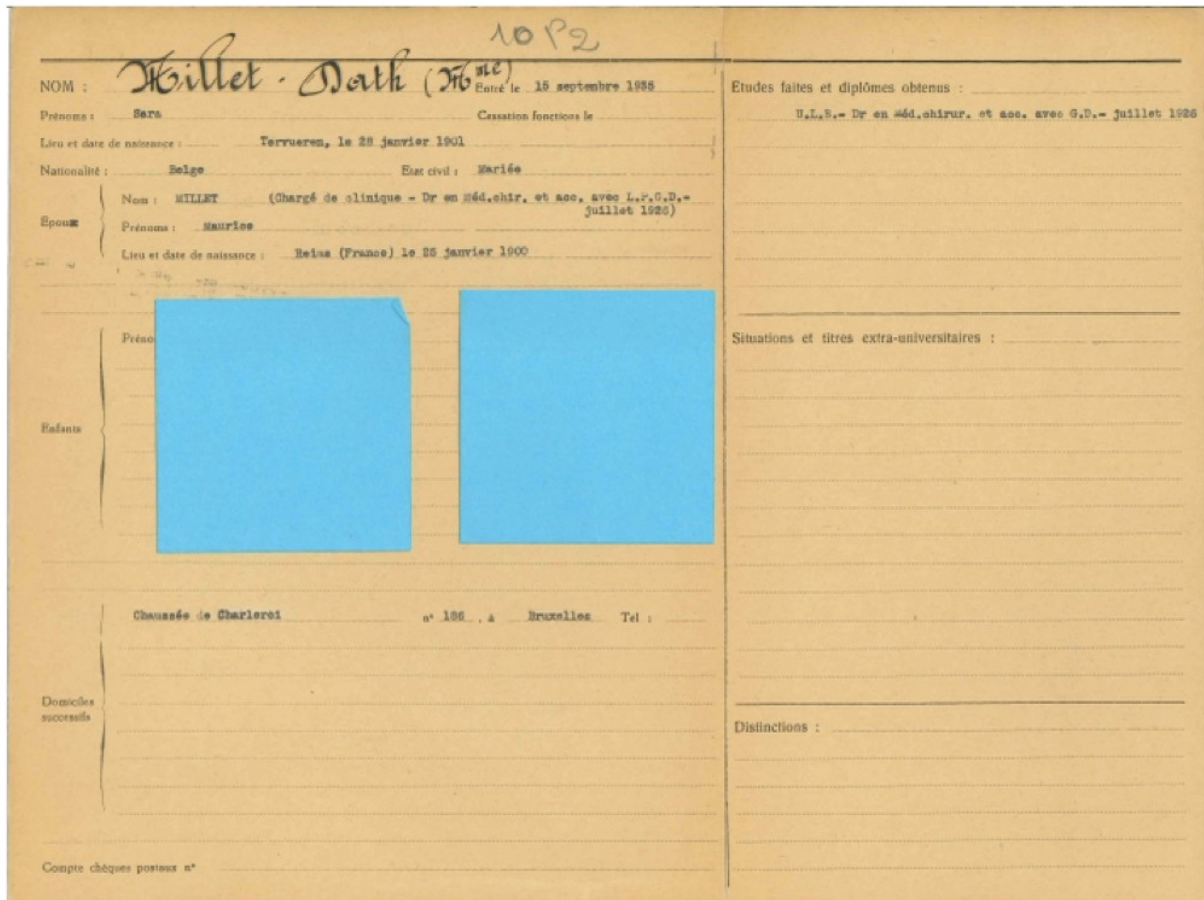 10 P2
NOM : Millet - Dath (Mme) Entré le 15 septembre 1935
Prénoms : Sara Cessation fonctions le
Lieu et date de naissance : Tervueren, le 28 janvier 1901
Nationalité : Belge Etat civil : Mariée
Epoux
Nom : MILLET (Chargé de clinique - Dr en Méd.chir. et acc. avec L.P.G.D.-
juillet 1926)
Prénoms : Maurice
Lieu et date de naissance : Reims (France) le 25 janvier 1900
Enfants
Préno
Domiciles
successifs
Chaussée de Charleroi n° 186 , à Bruxelles Tel :
Compte chèques postaux n°
Etudes faites et diplômes obtenus :
U.L.B.- Dr en Méd.chirur. et acc. avec G.D.- juillet 1926
Situations et titres extra-universitaires :
Distinctions :